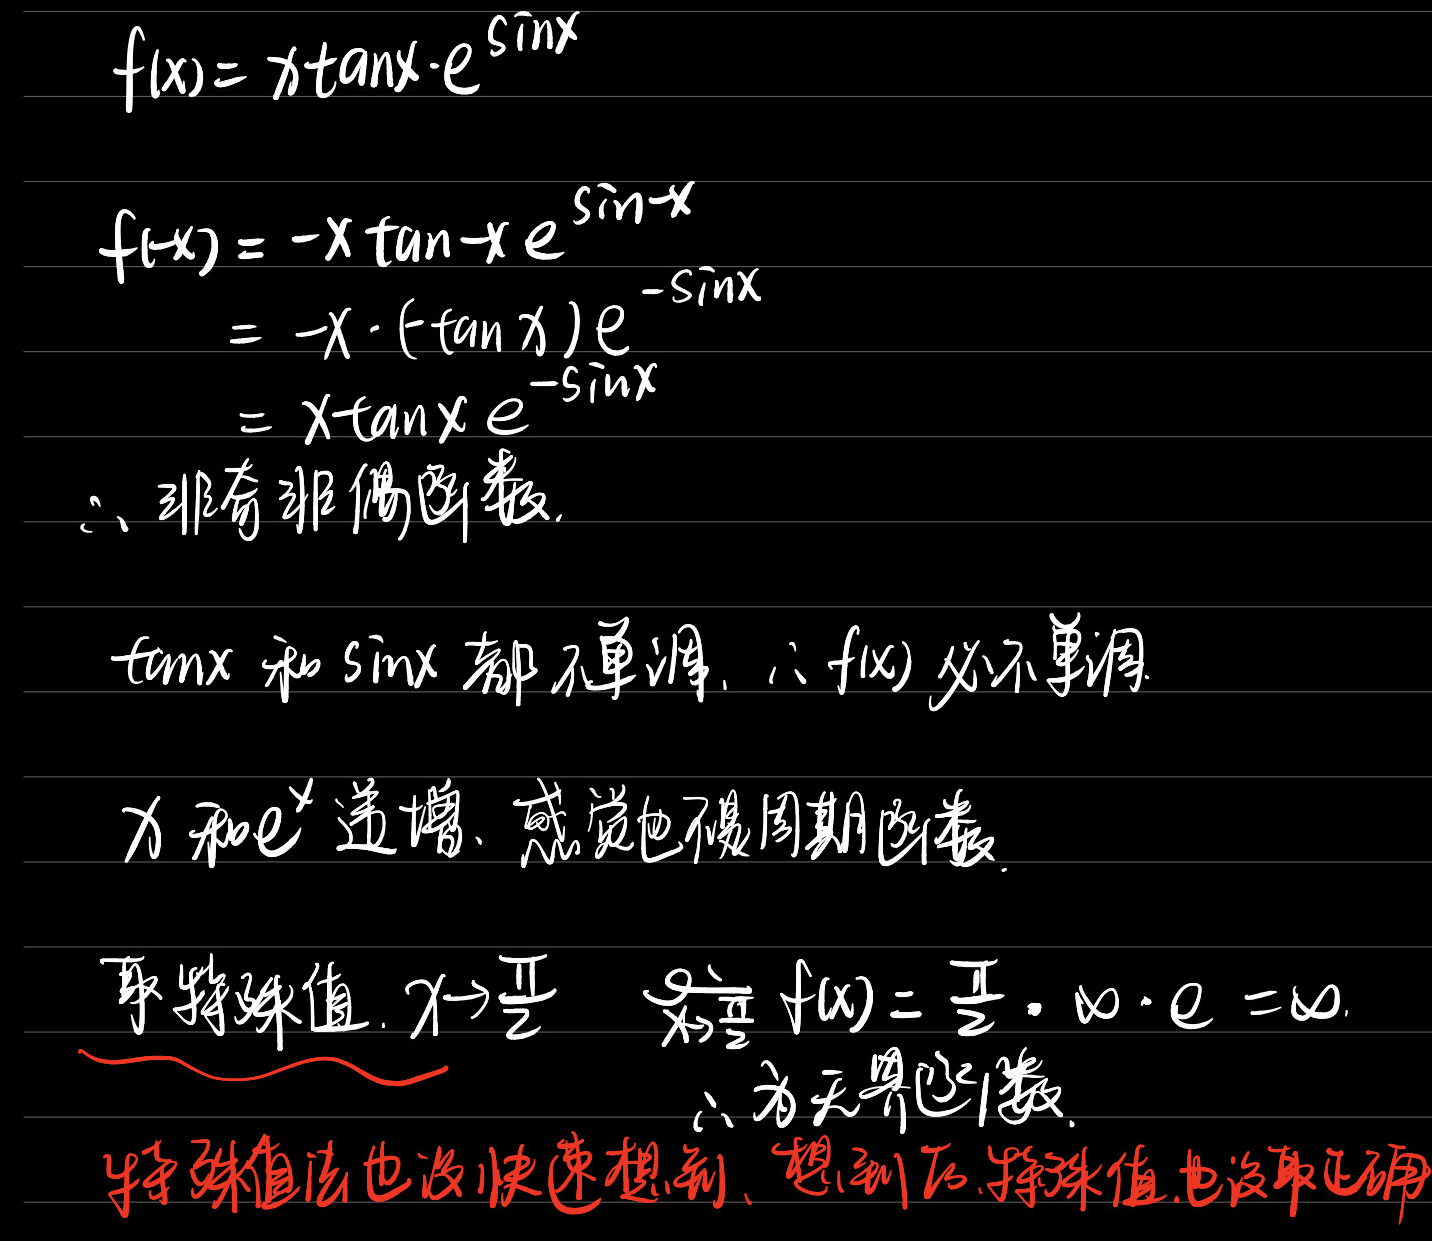 f(x) = x tanx · e^{sinx}
f(-x) = -x tan-x e^{sin-x}
= -x · (-tan x) e^{-sinx}
= x tanx e^{-sinx}
∴ 非奇非偶函数.
tanx 和 sinx 都不单调, ∴ f(x) 必不单调.
x 和 e^x 递增、感觉也不是周期函数.
取特殊值. x→π/2 lim_{x→π/2} f(x) = π/2 · ∞ · e = ∞.
∴ 为无界函数.
特殊值法也没快速想到、想到后、特殊值也没取正确